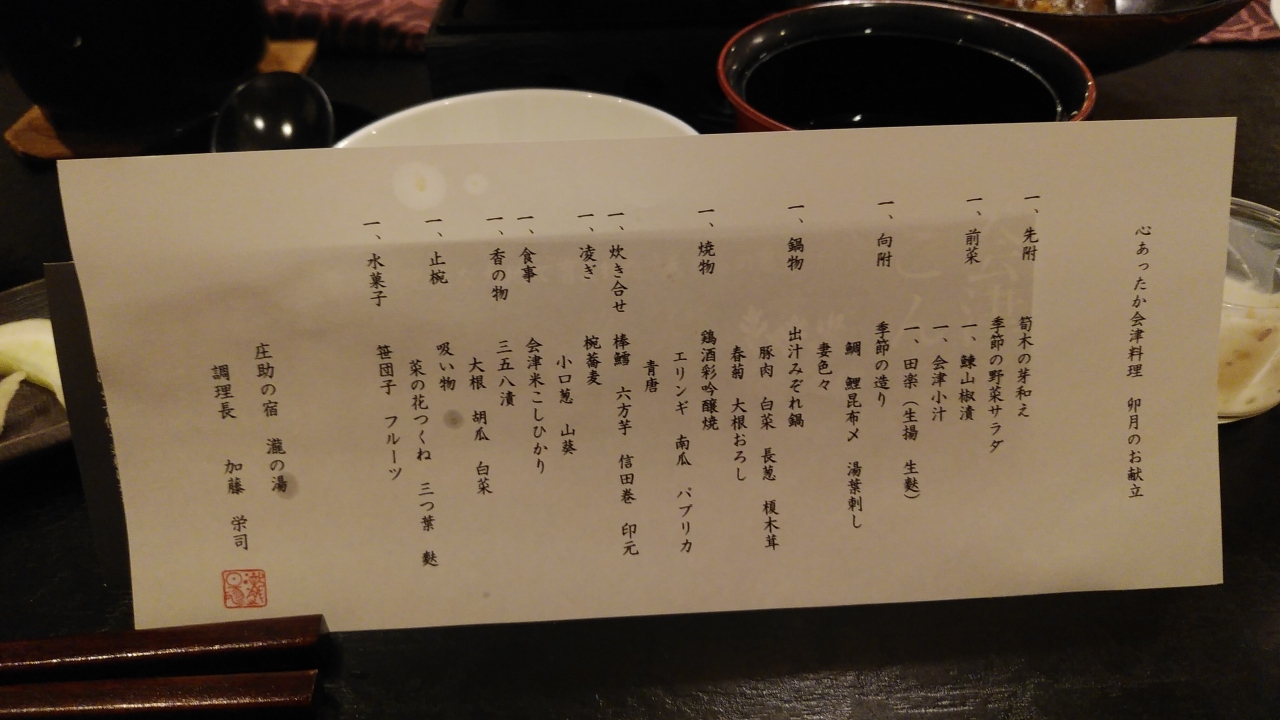 心あったか会津料理　卯月のお献立
一、先附　筍木の芽和え
季節の野菜サラダ
一、前菜　一、鰊山椒漬
一、会津小汁
一、田楽（生揚　生麩）
一、向附　季節の造り
鯛　鯉昆布〆　湯葉刺し
妻色々
一、鍋物　出汁みぞれ鍋
豚肉　白菜　長葱　榎木茸
春菊　大根おろし
一、焼物　鶏酒彩吟醸焼
エリンギ　南瓜　パプリカ
青唐
一、炊き合せ　棒鱈　六方芋　信田巻　印元
一、凌ぎ　椀蕎麦
小口葱　山葵
一、食事　会津米こしひかり
一、香の物　三五八漬
大根　胡瓜　白菜
一、止椀　吸い物
菜の花つくね　三つ葉　麩
一、水菓子　笹団子　フルーツ
庄助の宿　瀧の湯
調理長　加藤　栄司